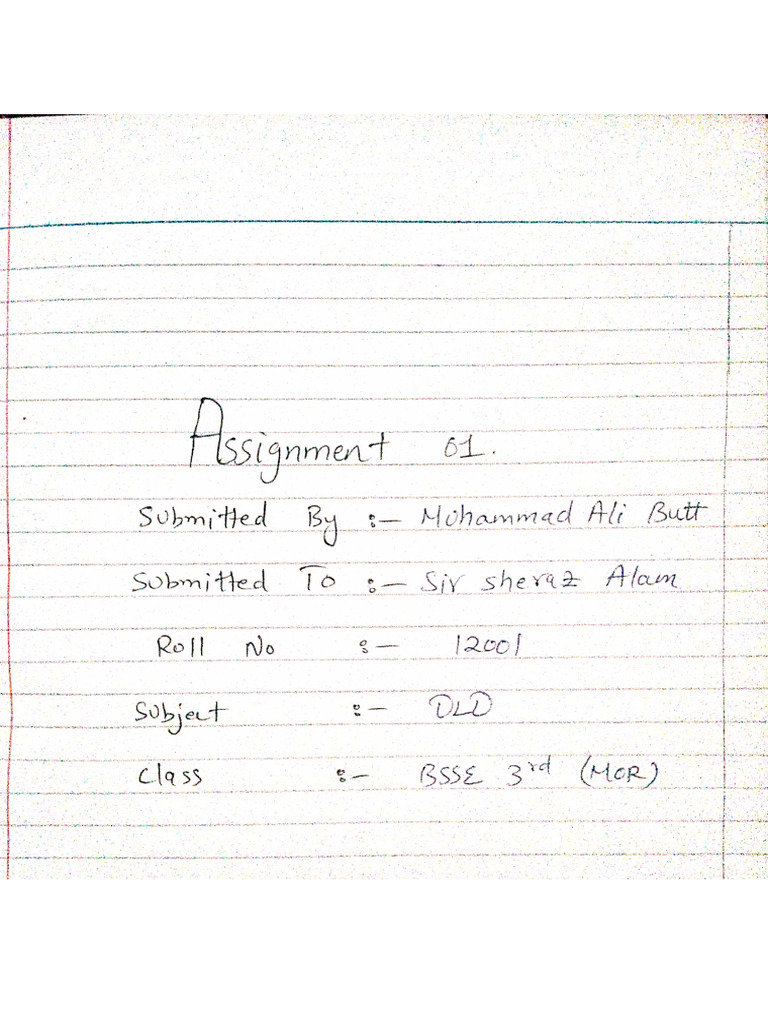 Assignment 01.
Submitted By :- Mohammad Ali Butt
Submitted To :- Sir Sheraz Alam
Roll No :- 12001
Subject :- DLD
Class :- BSSE 3rd (MOR)